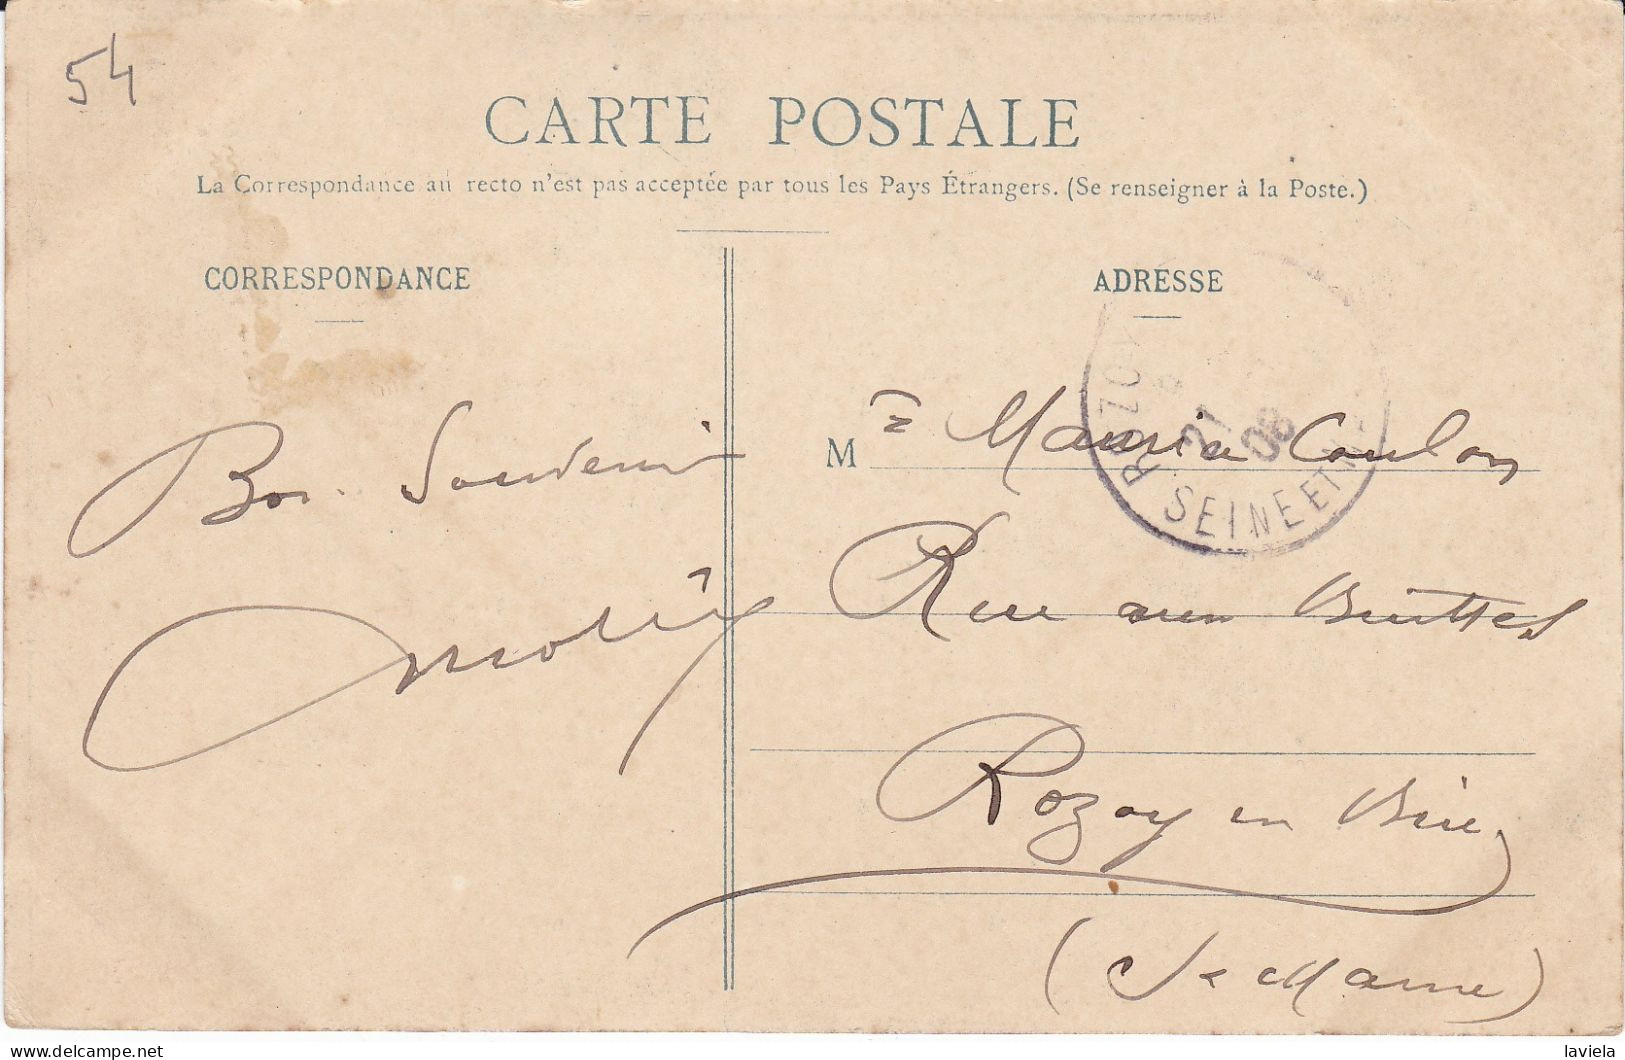 54
CARTE POSTALE
La Correspondance au recto n'est pas acceptée par tous les Pays Étrangers. (Se renseigner à la Poste.)
CORRESPONDANCE
ADRESSE
ROZOY
21
08
SEINE ET M
Bon Souvenir
M Maurice Coulon
Rue aux Buttes
Rozoy en Brie
(Se Marne)
delcampe.net
laviela